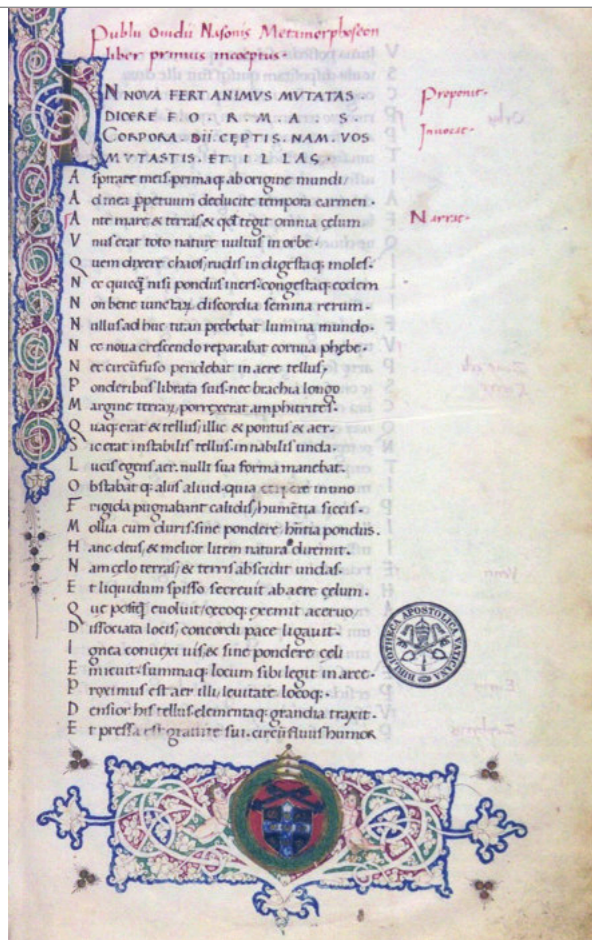 Publii Ouidii Nasonis Metamorphoseon
liber primus incoeptus·
IN NOVA FERT ANIMVS MVTATAS
DICERE FORMAS
CORPORA· DII CEPTIS· NAM· VOS
MVTASTIS· ET ILLAS
Proponit·
Inuocat·
A spirate meis· primaq; ab origine mundi
A d mea ꝑpetuum deducite tempora carmen·
A nte mare & terras & qđ tegit omnia celum
Narrat·
V nus erat toto nature uultus in orbe
Q uem dixere chaos; rudis indigestaq; moles·
N ec quicq; nisi pondus iners· congestaq; eodem
N on bene iunctaꝝ discordia semina rerum·
N ullus ad huc titan prebebat lumina mundo·
N ec noua crescendo reparabat cornua phębe·
N ec circūfuso pendebat in aere tellus;
P onderibus librata suis· nec brachia longo
M argine terraꝝ; porrexerat amphitrites·
Q uaq; erat & tellus; illic & pontus & aer·
S ic erat instabilis tellus· innabilis unda·
L ucis egens aer· nulli sua forma manebat·
O bstabat q; aliis aliud· quia corpore in uno
F rigida pugnabant calidis; humētia siccis·
M ollia cum duris· sine pondere hñtia pondus·
H anc deus; & melior litem natura diremit·
N am celo terras; & terris abscidit undas·
E t liquidum spisso secreuit ab aere celum·
Q ue postq̃ euoluit; cecoq; exemit aceruo;
D issociata locis; concordi pace ligauit·
I gnea conuexi uis; & sine pondere celi
E micuit· summaq; locum sibi legit in arce·
P roximus est aer illi; leuitate locoq;·
D ensior his tellus· elementaq; grandia traxit·
E t pressa est grauite sui· circūfluus humor
BIBLIOTHECA APOSTOLICA VATICANA